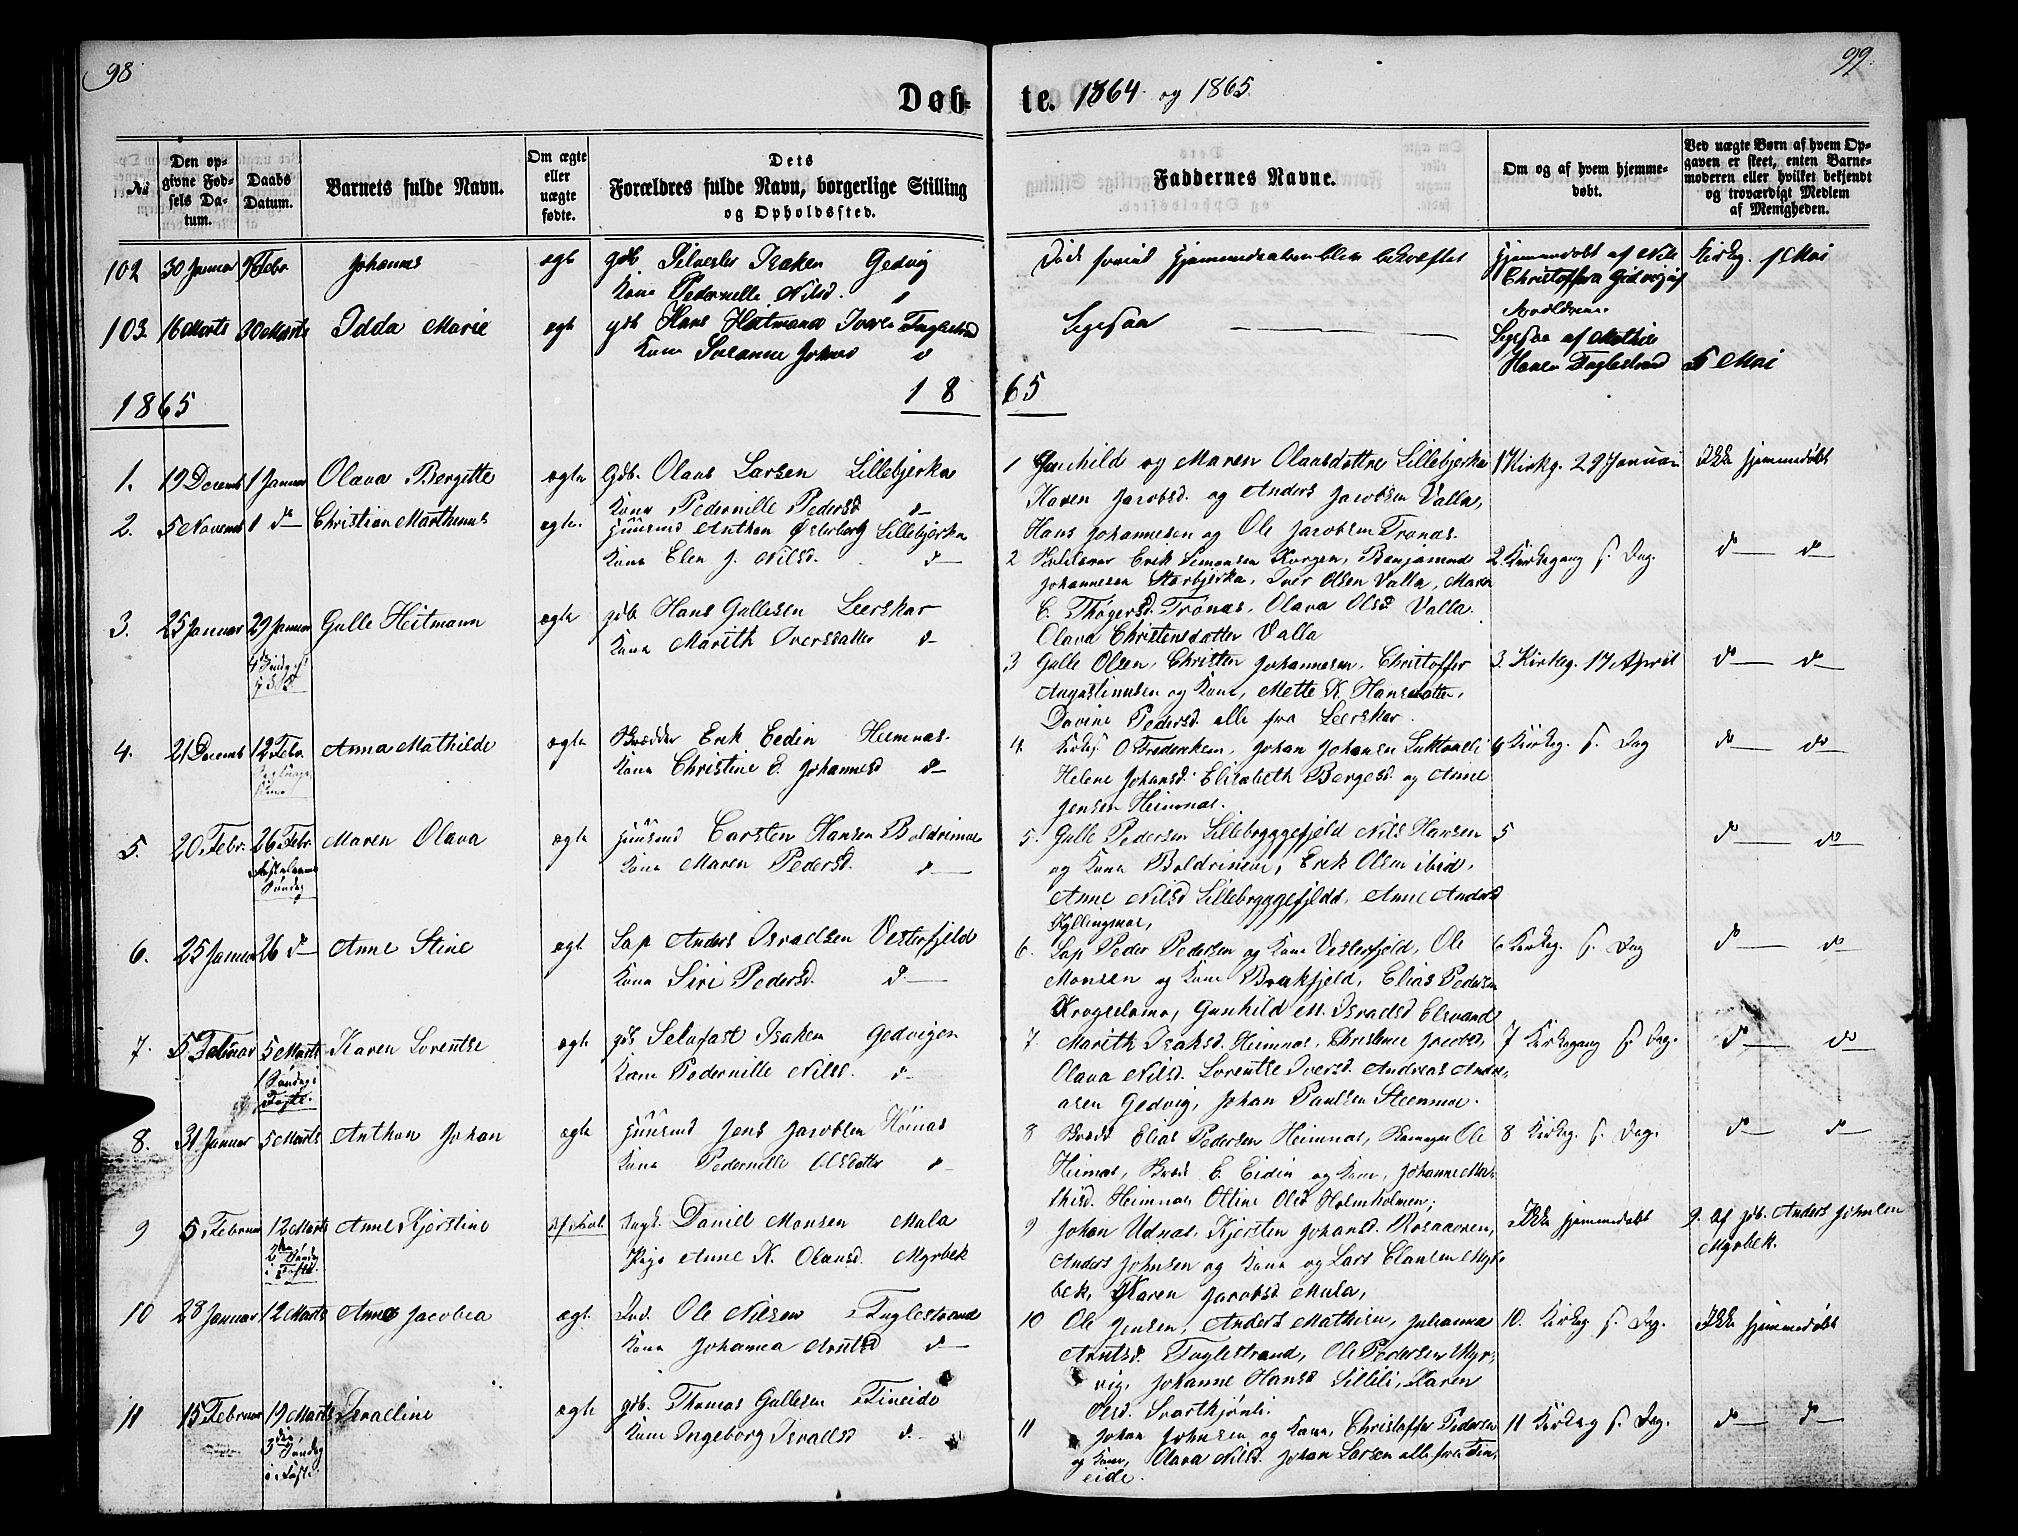 98
99
Døb-
te. 1864 og 1865
№
Den opgivne Fødsels Datum.
Daabs Datum.
Barnets fulde Navn.
Om ægte eller uægte fødte.
Dets Forældres fulde Navn, borgerlige Stilling og Opholdssted.
Faddernes Navne.
Om og af hvem hjemmedøbt.
Ved uægte Børn af hvem Opgaven er skeet, enten Barnemoderen eller hvilket bekjendt og troværdigt Medlem af Menigheden.
102 30 Januar Febr Johannes ægte gdb Silvester Isaksen Gedvig
Kone Pedernille Nilsd.
Død forind Hjemmedaaben blev bekræftet
Hjemmedøbt af Nils Christoffersen Gedvig
Kirkeg. 1 Mai
103. 16 Marts 20 Marts Idda Marie ægte gdb Hans Heitmann Iversen Fuglestrand
Kone Susanne Johnsd d
Ligesaa
Ligesaa af Mathis Hansen Fuglestrand
5 Mai
1865
18 65
1. 19 Decemb 1 Januar Olava Bergitte ægte Gdb. Olaus Larsen Lillebjerka
Kone Pedernille Pedersd d
1 Gunhild og Maren Olausdøttre Lillebjerka
Karen Jacobsd. og Anders Jacobsen Valla,
Hans Johannesen og Ole Jacobsen Tronæs.
1 Kirkg. 29 Januar
Ikke hjemmedøbt
2. 5 Novemb 1 do Christian Marthinus ægte. Huusmd Anthon Østerberg Lillebjerka
Kone Elen J. Nilsd. d
2 Erik Simonsen Korgen, Benjamin
Johannesen Storbjerka, Iver Olsen Valla, Maren
E. Thøgersd. Tronæs, Olava Olsd Valla.
Olava Christensdatter Valla
2. Kirkegang s. Dag.
do do
3. 25 Januar 29 Januar Gulle Heitmann ægte gdb. Hans Gullesen Leerskar
Kone Marith Iversdatter d
3 Gulle Olsen, Christen Johannesen, Christoffer
Augustinusen og Kone, Mette K. Hansdatter,
Davine Pedersd. alle fra Leerskar.
3. Kirkeg. 17 April
do do
4. 21 Decemb 12 Febr. Anna Mathilde ægte Skrædder Erik Eedin Hemnæs.
Kone Christine E. Johannesd d
4. O Frederiksen, Johan Johansen
Helene Johansd. Elisabeth Bergesd. og Anne
Jensen Heimnæs.
4 Kirkeg. s. Dag
do do
5. 20 Febr. 26 Febr. Maren Olava ægte Huusmd Carsten Hansen Boldrimoe
Kone Maren Pedersd. d
Fastelavns Søndag
5. Gulle Pedersen Lillebryggefjeld Nils Hansen
og Kone Boldrimoe, Erik Olsen ibid,
Anne Nilsd Lillebryggefjeldt, Anne Andersd
Kyllingmoe,
5
do do
6. 25 Januar 26 do Anne Stine ægte Lap Anders Israelsen Vesterfjeld
Kone Siri Pedersd. d
6. Lap Peder Pedersen og Kone Vesterfjeld, Ole
Monsen og Kone Brækfjeld, Elias Pedersen
Gunhild M. Israelsd
6 Kirkeg. s. Dag
do do
7. 5 Februar 5 Marts Karen Lorentse ægte gdb Selvfast Isaksen Gedvigen
Kone Pedernille Nilsd. d
1 Søndag i Faste.
7. Marith Isaksd. Heimnæs, Christine Jacobsd,
Olava Nilsd. Lorentse Iversd. Andreas Andre-
asen Gedvig, Johan Paulsen Steenmoe.
7 Kirkegang s. Dag.
do do
8. 31 Januar 5 Marts Anthon Johan ægte Huusmd Jens Jacobsen
Kone Pedernille Olsdatter d
8 Elias Pedersen Heimnæs, Ole
Heimnæs, E. Eidin og Kone, Johanne Ma-
thisd. Heimnæs Oltine Olsd Holmholmen;
8 Kirkeg. s. Dag.
do do
9 5 Februar 12 Marts Anne Kjerstine Ungk. Daniel Monsen Mula
Pige Anne K. Olausd. Myrbek
2den Søndag i Faste.
9 Johan Udnæs, Kjersten Johansd. Rosaaren,
Anders Johnsen og Kone og Lars Clausen Myr-
bek, Karen Jacobsd Mula,
Ikke hjemmedøbt
9. Af gdb. Anders Johnsen Myrbek.
10 28 Januar 12 Marts Anna Jacobea ægt. Ind. Ole Nilsen Fuglestrand
Kone Johanna Arntsd d
10 Ole Jensen, Anders Mathisen, Julianna
Arntsd. Fuglestrand, Ole Pedersen Myr-
vig, Johanne Hansd Lillili, Karen
Olsd. Svartkjønli.
10. Kirkeg s. Dag.
Ikke hjemmedøbt
11 15 Februar 19 Marts Israeline ægte gdb. Thomas Gullesen Fineide
Kone Ingeborg Israelsd d
3die Søndag i Faste.
11 Johan Johnsen og Kone, Christoffer Pedersen
og Kone, Olava Nilsd. Johan Larsen alle fra Fin-
eide.
11 Kirkeg s. Dag.
do do